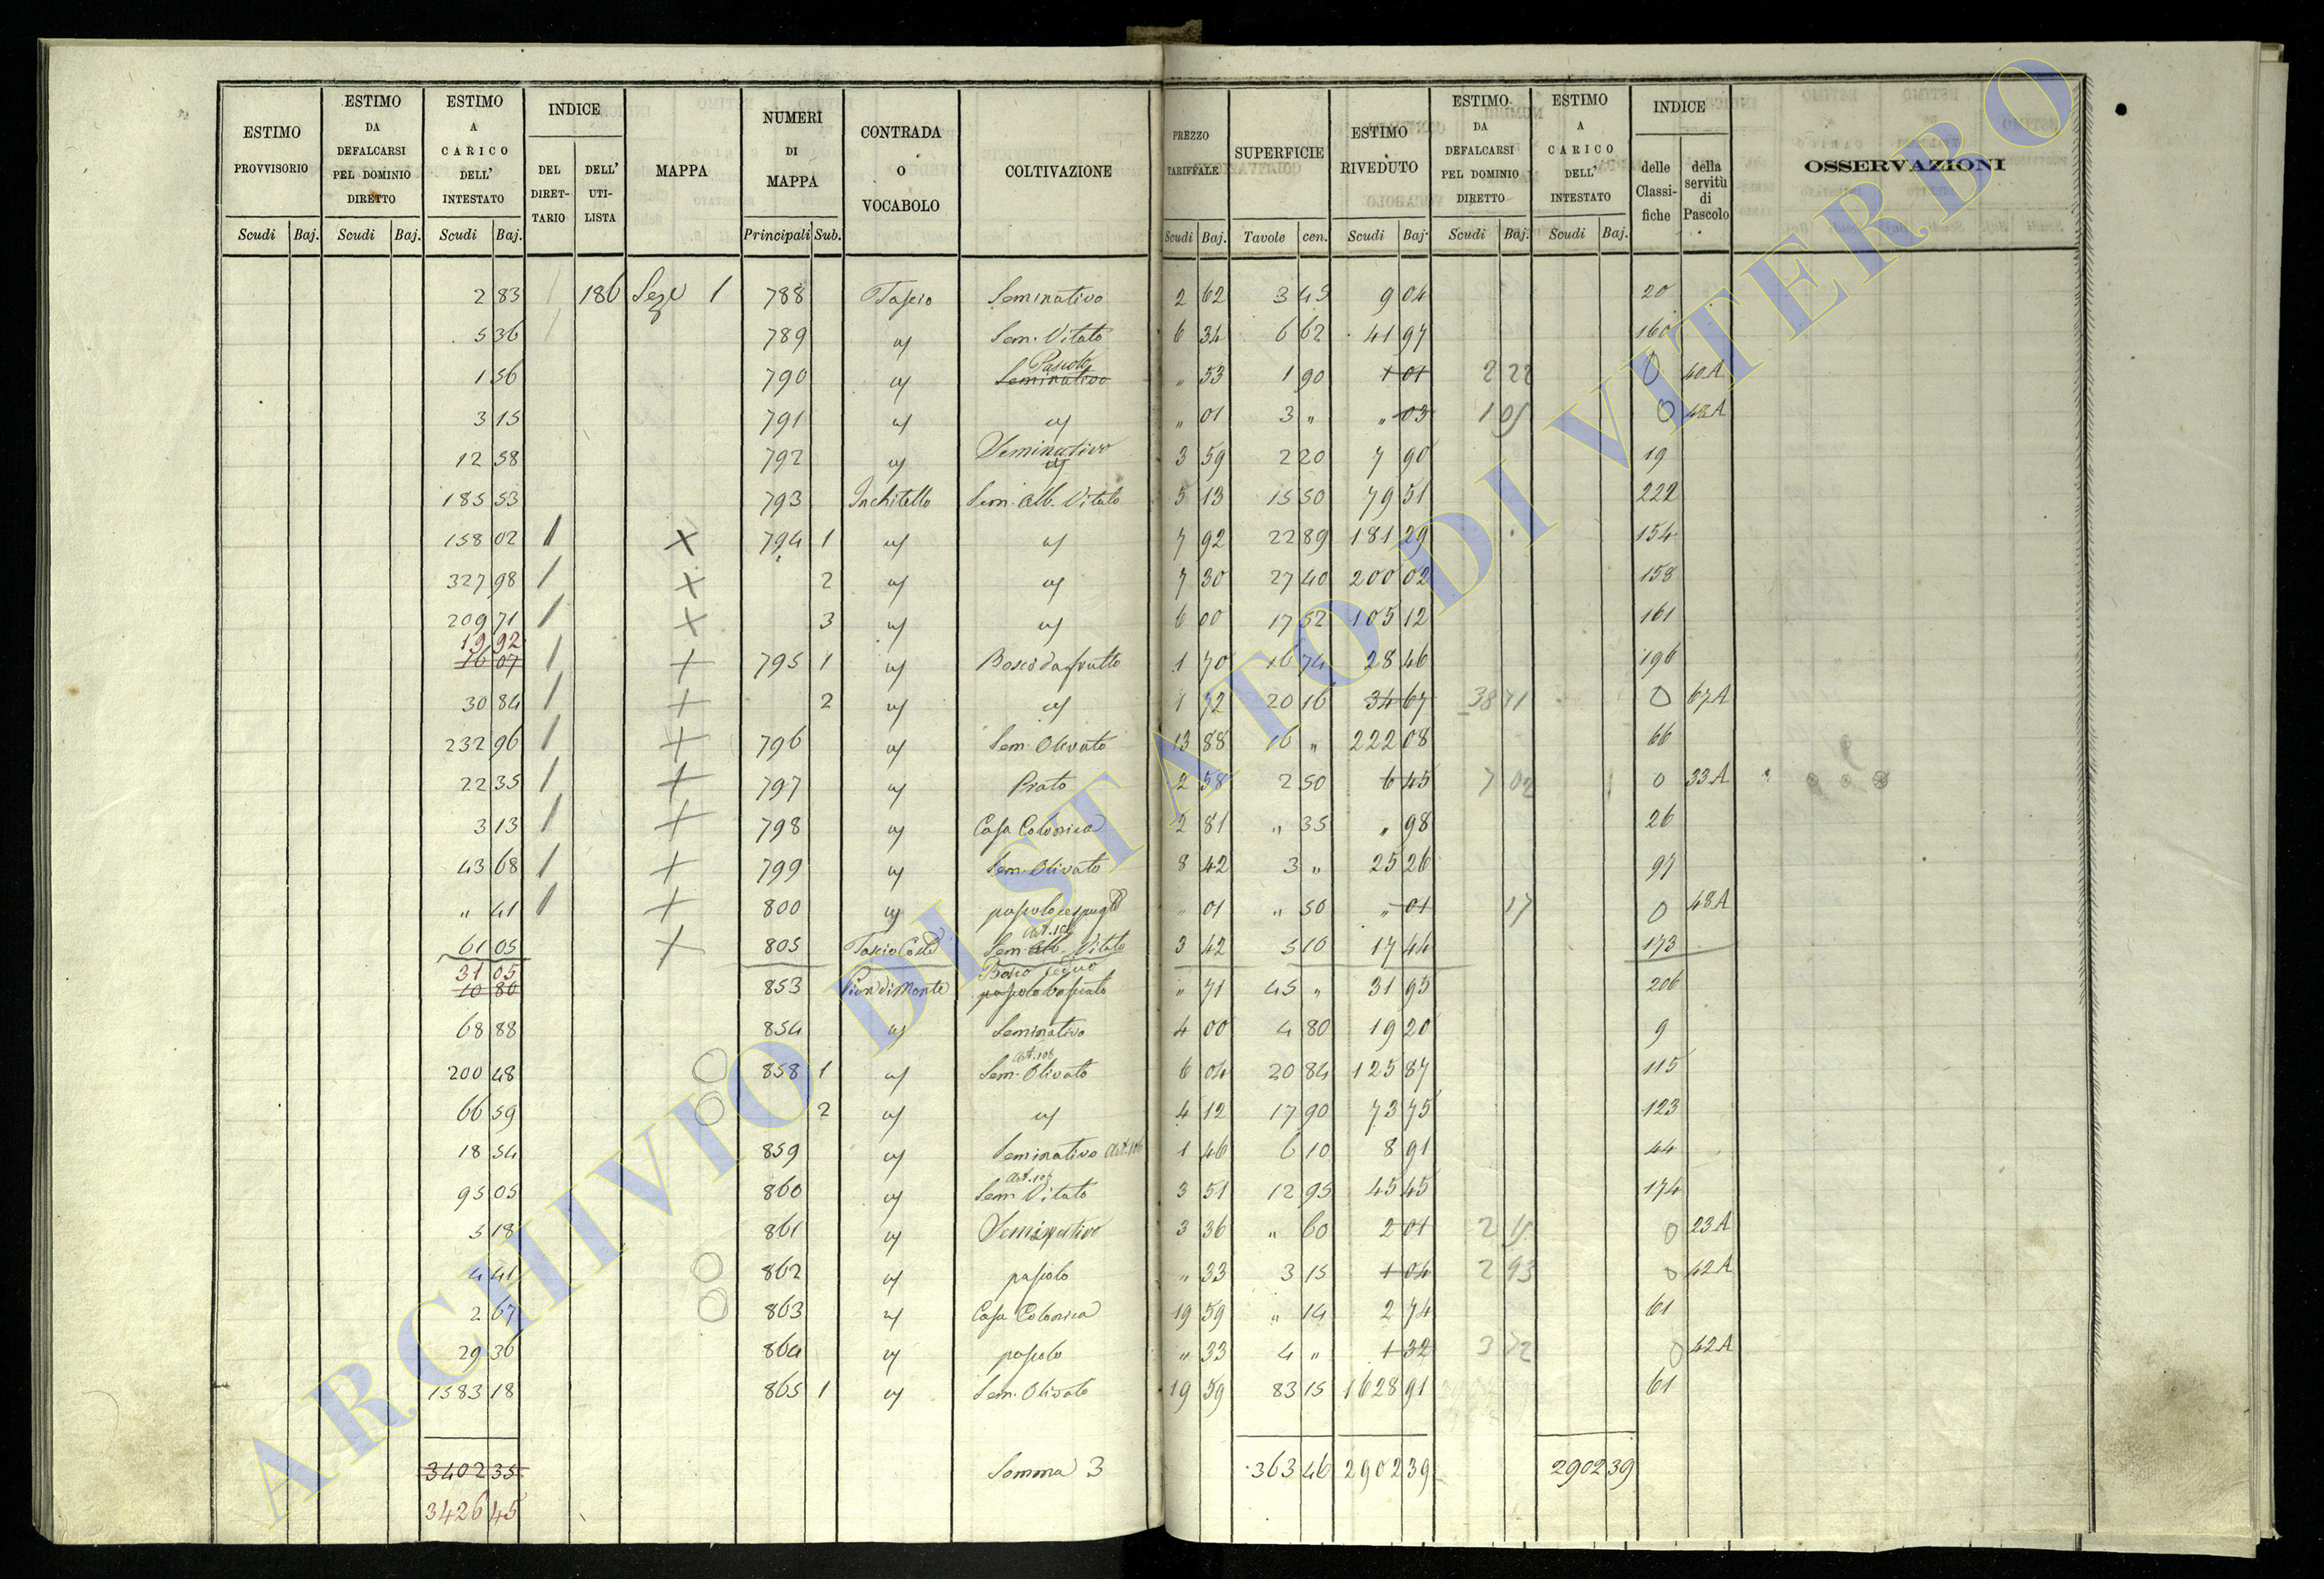 ESTIMO PROVVISORIO | ESTIMO DA DEFALCARSI PEL DOMINIO DIRETTO | ESTIMO A CARICO DELL' INTESTATO | INDICE DEL DIRET-TARIO | DELL' UTI-LISTA | MAPPA | NUMERI DI MAPPA | CONTRADA O VOCABOLO | COLTIVAZIONE | PREZZO TARIFFALE | SUPERFICIE | ESTIMO RIVEDUTO | ESTIMO DA DEFALCARSI PEL DOMINIO DIRETTO | ESTIMO A CARICO DELL' INTESTATO | INDICE delle Classi-fiche | della servitù di Pascolo | OSSERVAZIONI
Scudi | Baj. | Scudi | Baj. | Scudi | Baj. | Principali | Sub. | Scudi | Baj. | Tavole | cen. | Scudi | Baj. | Scudi | Baj. | Scudi | Baj.
2 83 | 186 | 1 | 788 | Tascio | Seminativo | 2 62 | 3 45 | 9 04 | 20
5 36 | 789 | " | Sem. Vitato | 6 34 | 6 62 | 41 97 | 160
1 56 | 790 | " | Seminativo Pascolo | " 53 | 1 90 | 1 01 | 2 22 | 0 | 40A
3 15 | 791 | " | " | " 01 | 3 " | " 03 | 1 05 | 0 | 48A
12 58 | 792 | " | Seminativo | 3 59 | 2 20 | 7 90 | 19
185 53 | 793 | Inchitello | Sem. Alb. Vitato | 5 13 | 15 50 | 79 51 | 222
158 02 | 1 | X | 794 | 1 | " | " | 7 92 | 22 89 | 181 29 | 154
327 98 | 1 | X | 2 | " | " | 7 30 | 27 40 | 200 02 | 158
209 71 | 1 | X | 3 | " | " | 6 00 | 17 52 | 105 12 | 161
19 92
16 07 | 1 | X | 795 | 1 | " | Bosco da frutto | 1 70 | 16 74 | 28 46 | 196
30 84 | 1 | X | 2 | " | " | 1 72 | 20 16 | 34 67 | 38 71 | 0 | 67A
232 96 | 1 | X | 796 | " | Sem. Olivato | 13 88 | 16 " | 222 08 | 66
22 35 | 1 | X | 797 | " | Prato | 2 58 | 2 50 | 6 45 | 7 02 | 0 | 33A
3 13 | 1 | X | 798 | " | Casa Colonica | 2 81 | " 35 | " 98 | 26
43 68 | 1 | X | 799 | " | Sem. Olivato | 8 42 | 3 " | 25 26 | 97
" 41 | 1 | X | 800 | " | pascolo cespugto | " 01 | " 50 | " 01 | 17 | 0 | 48A
61 05 | X | 805 | Tascio | Sem. Alb. Vitato Art. 106 | 3 42 | 5 10 | 17 44 | 173
31 05 | Bosco ceduo
10 80 | 853 | Pian di Monte | pascolo boscato | " 71 | 45 " | 31 95 | 206
68 88 | 854 | " | Seminativo | 4 00 | 4 80 | 19 20 | 9
200 48 | 858 | 1 | " | Art. 106 Sem. Olivato | 6 04 | 20 84 | 125 87 | 115
66 59 | 2 | " | " | 4 12 | 17 90 | 73 75 | 123
18 54 | 859 | " | Seminativo Art. 106 | 1 46 | 6 10 | 8 91 | 44
95 05 | 860 | " | Art. 106 Sem. Vitato | 3 51 | 12 95 | 45 45 | 174
5 18 | 861 | " | Seminativo | 3 36 | " 60 | 2 01 | 0 | 23A
4 41 | 862 | " | pascolo | " 33 | 3 15 | 1 04 | 2 93 | 0 | 42A
2 67 | 863 | " | Casa Colonica | 19 59 | " 14 | 2 74 | 61
29 36 | 864 | " | pascolo | " 33 | 4 " | 1 32 | 3 72 | 0 | 42A
1583 18 | 865 | 1 | " | Sem. Olivato | 19 59 | 83 15 | 1628 91 | 61
3402 35 | Somma 3 | 363 46 | 2902 39 | 2902 39
3426 45
ARCHIVIO DI STATO DI VITERBO